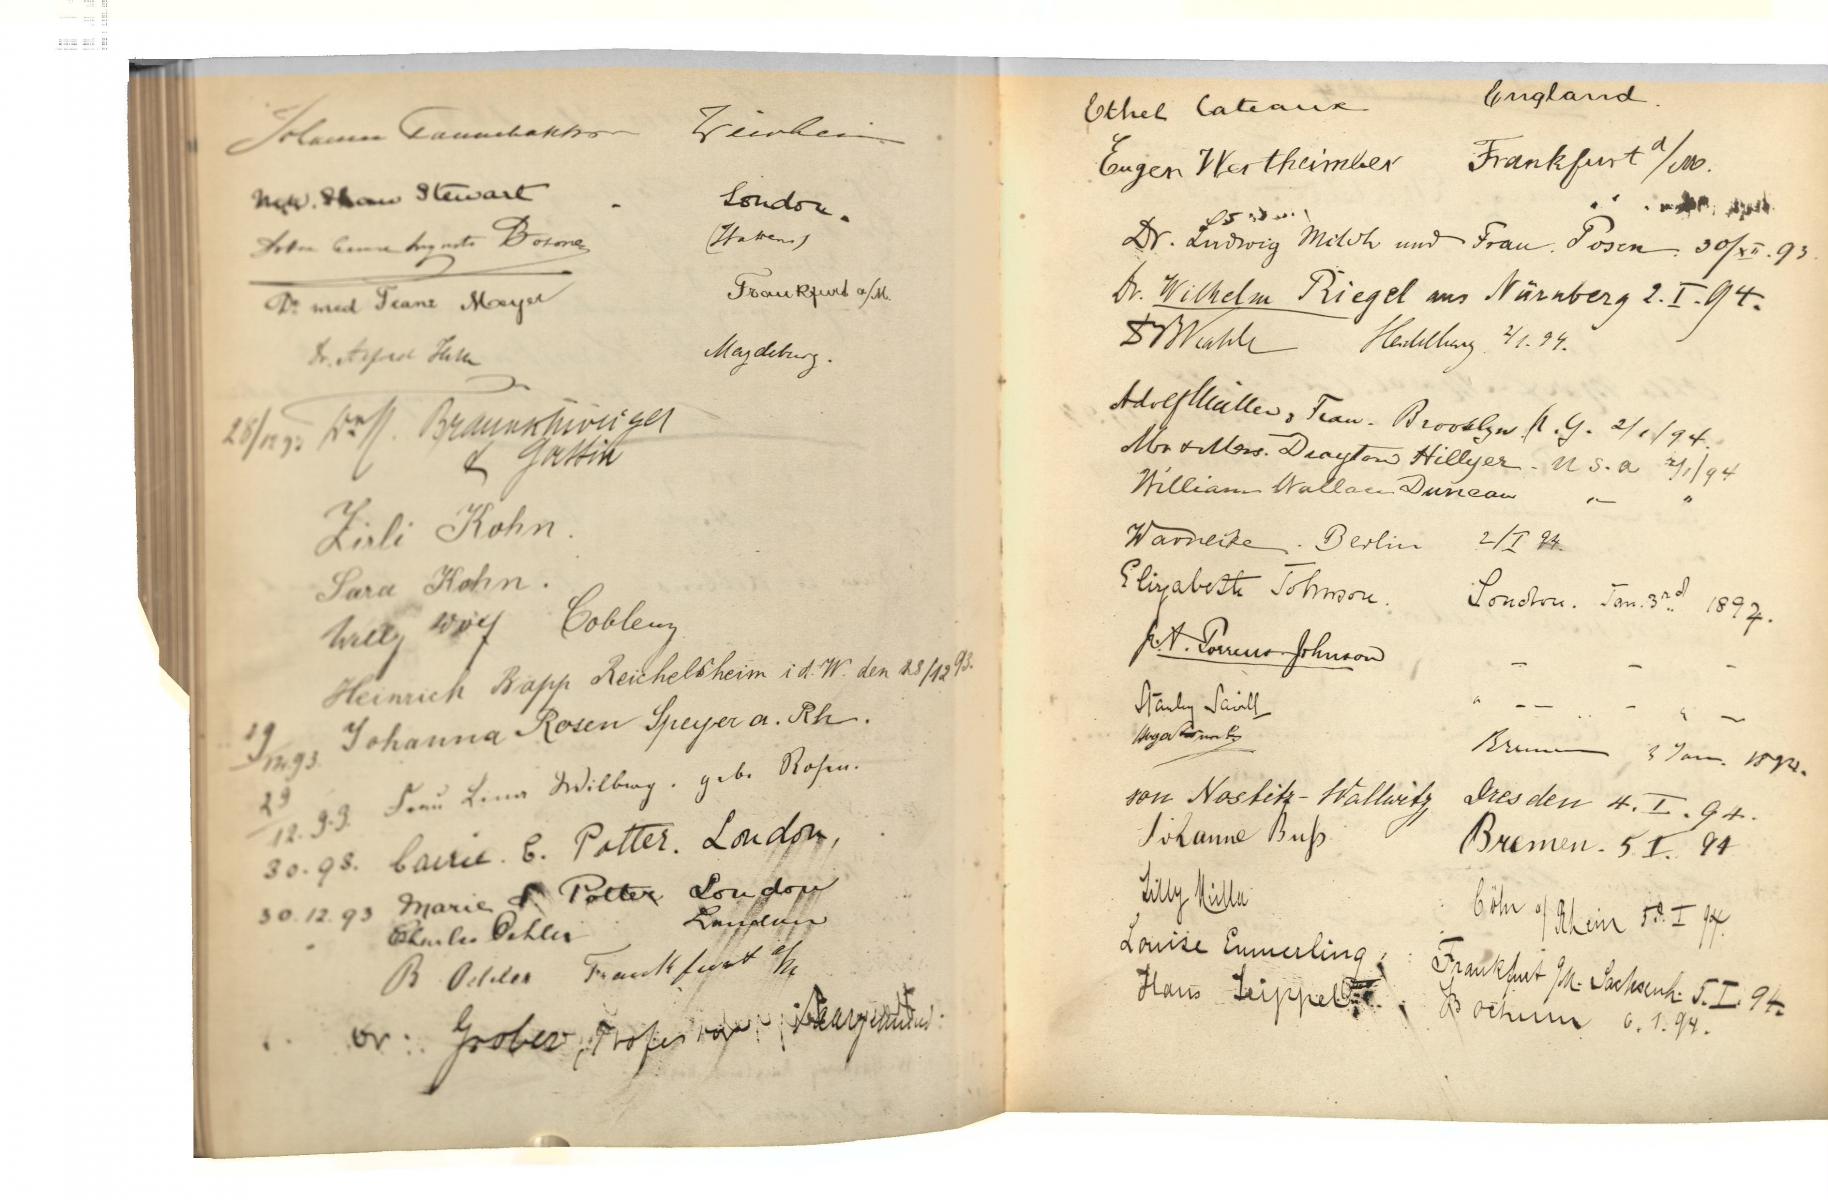 Weinheim
Shaw Stewart London.
(Italien)
Dr med Franz Meyer Frankfurt a/M.
Dr. Alfred Magdeburg.
28/12 93 Dr Braunschweiger
& Gattin
Zirli Kohn.
Sara Kohn.
Willy Wolf Coblenz
Heinrich Rapp Reichelsheim i d. W. den 28/12 93.
29/12.93. Johanna Rosen Speyer a. Rh.
29/12.93. Frau Lina Wilburg. geb. Rosen.
30.93. Carrie. E. Potter. London,
30.12.93 Marie Potter London
Charles Oehler London
B Oehler Frankfurt a/M
Dr: Grober, Professor Saargemünd.
Ethel Cateaux England.
Eugen Wertheimber Frankfurt a/M.
Dr. Ludwig Milch und Frau. Posen. 30/XII.93.
Dr. Wilhelm Riegel aus Nürnberg 2.I.94.
Heidelberg 2/1.94.
Adolf Müller & Frau. Brooklyn N.Y. 2/1/94.
Mr & Mrs. Drayton Hillyer. U.S.A 2/1/94
William Wallace Duncan " "
Warnecke. Berlin 2/I 94.
Elizabeth Johnson. London. Jan. 3rd 1894.
A. Porrens-Johnson – – –
Stanley Savill " – – " –
Bremen 3 Jan. 1894.
von Nostitz-Wallwitz, Dresden 4.I.94.
Johanne Buß Bremen. 5.I. 94
Lilly Müller Cöln a/Rhein 5.I 94.
Louise Emmerling, Frankfurt a/M. Sachsenh. 5.I.94.
Hans Leippelt. Bochum 6.1.94.